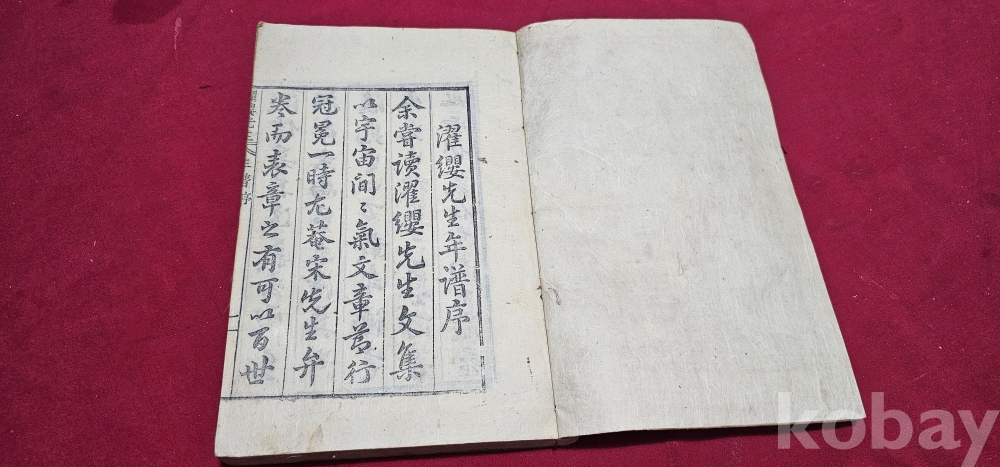 濯纓先生年譜序
余嘗讀濯纓先生文集
以宇宙間〻氣文章節行
冠冕一時尤菴宋先生弁
卷而表章之有可以百世
kobay